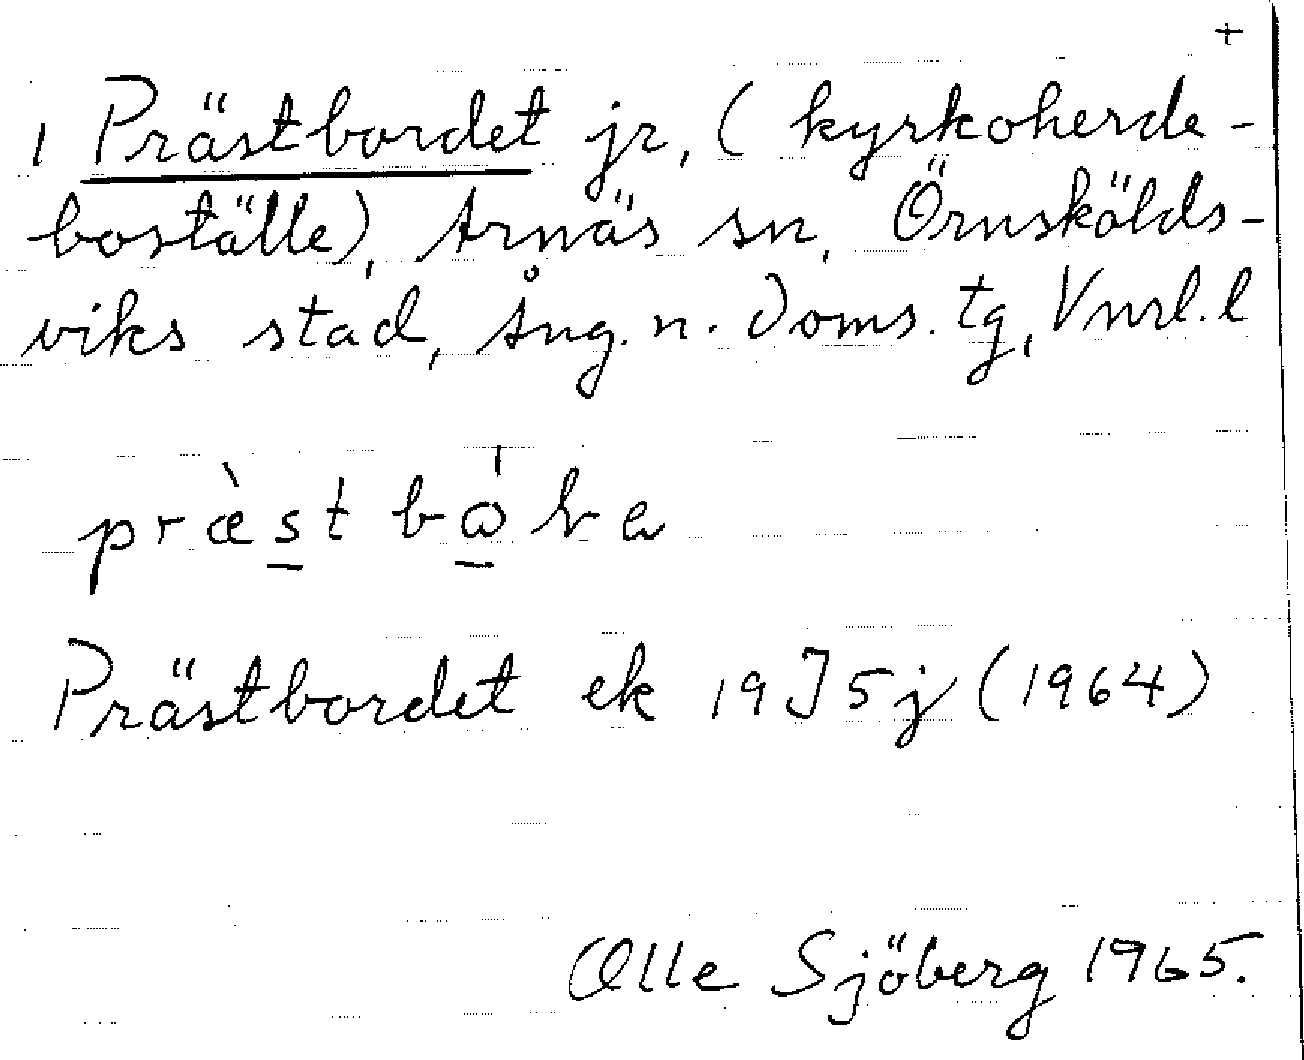 +
1 Prästbordet jr, (kyrkoherde-
boställe), Arnäs sn, Örnskölds-
viks stad, Ång. n. Doms. tg, Vnrl. l
Prästbordet ek 19J5j (1964)
Olle Sjöberg 1965.